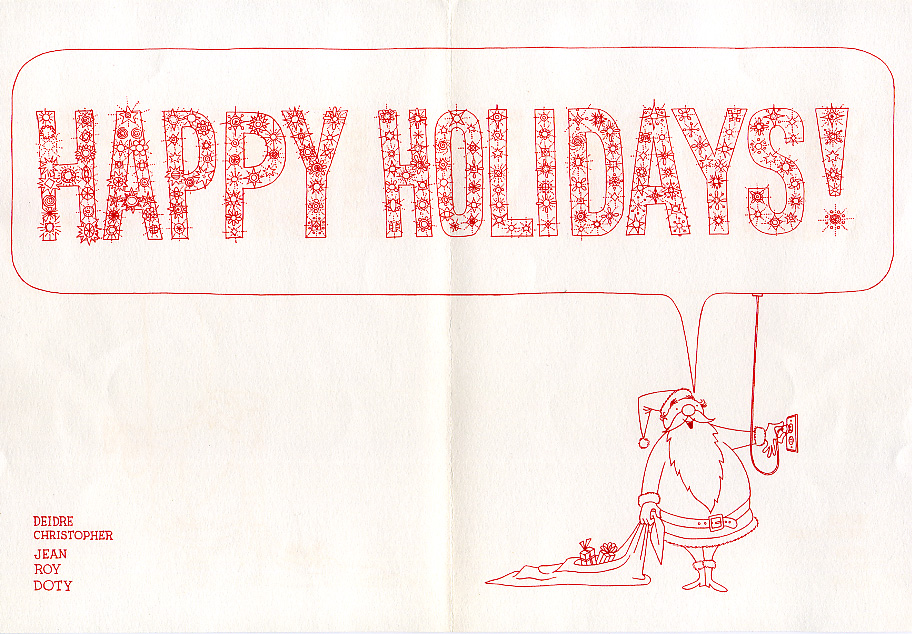 HAPPY HOLIDAYS!
DEIDRE
CHRISTOPHER
JEAN
ROY
DOTY